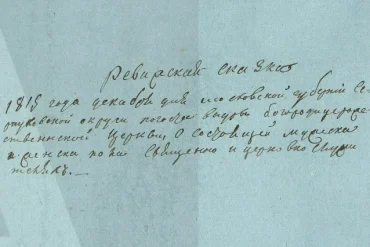 Ревирская сказка
1815 года декабря дня московской губернии Се
рпуховской округи погоста выды богородицерожде
ственнской церькви, О состоящей мужеска
и женска пола Священно и церковно Служи
телехъ.